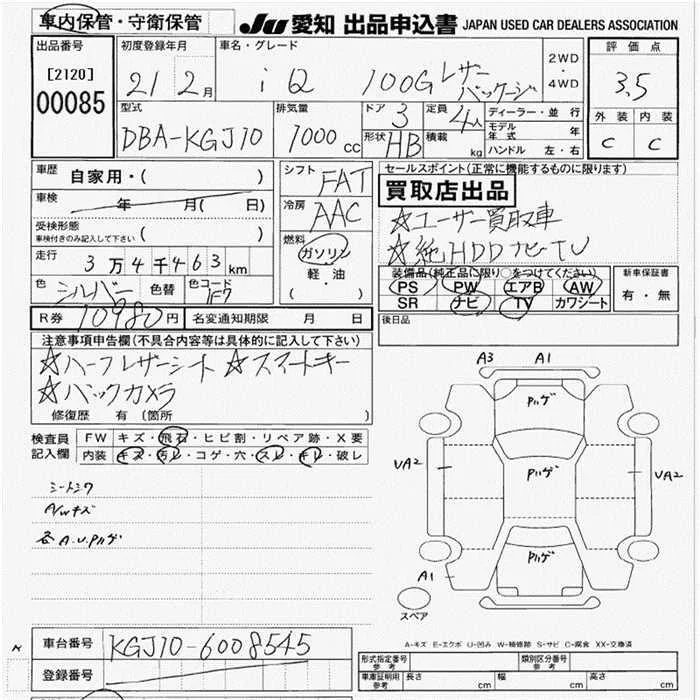 車内保管・守衛保管
JU 愛知 出品申込書 JAPAN USED CAR DEALERS ASSOCIATION
出品番号 初度登録年月 車名・グレード 2WD・4WD 評価点
[2120] 21 2月 iQ 100G レザーパッケージ 3.5
00085
型式 排気量 ドア 3 定員 4人 ディーラー・並行 外装 内装
DBA-KGJ10 1000cc 形状 HB 積載 kg モデル年式 年 C C
ハンドル 左・右
車歴 自家用・( ) シフト FAT セールスポイント(正常に機能するものに限ります)
買取店出品
車検 年 月( 日) 冷房 AAC ☆ユーザー買取車
受検形態 ( )
車検付きのみ記入して下さい
☆純HDDナビーTV
走行 3万4千463km 燃料 ガソリン・軽油 ( )
装備品(純正品に限り○をつけてください) 新車保証書
色 シルバー 色替 色コード 1F7 PS PW エアB AW 有・無
SR ナビ TV カワシート
R券 10980円 名変通知期限 月 日 後日品
注意事項申告欄(不具合内容等は具体的に記入して下さい)
☆ハーフレザーシート ☆スマートキー
☆バックカメラ
修復歴 有(箇所 )
検査員記入欄 FW キズ・飛石・ヒビ割・リペア跡・X要
内装 キズ・汚レ・コゲ・穴・スレ・キレ・破レ
シートシワ
A/Wキズ
各A.U.Pハゲ
A3 A1
Pハゲ
UA2 Pハゲ UA2
Pハゲ
A1
スペア
A-キズ E-エクボ U-凹み W-補修跡 S-サビ C-腐食 XX-交換済
車台番号 KGJ10-6008545
登録番号
形式指定番号 参考 類別区分番号 参考
車庫証明用 参考 長さ cm 幅 cm 高さ cm